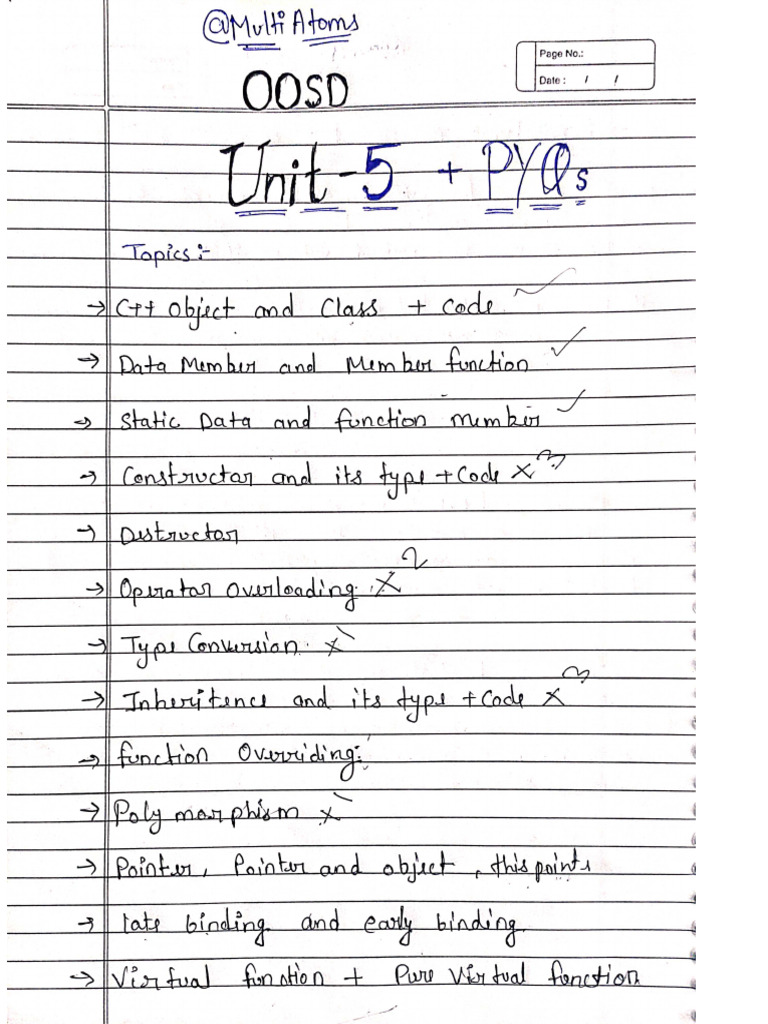 @Multi Atoms
Page No.:
OOSD
Date : / /
Unit-5 + PYQs
Topics:-
→ C++ Object and Class + Code
→ Data Member and Member function ✓
→ Static Data and function member ✓
→ Constructar and its type + Code × 3
→ Destructor
→ Operatar Overloading × 2
→ Type Conversion ×
→ Inheritence and its type + Code × 3
→ function Overriding:
→ Polymorphism ×
→ Pointer, Pointer and object, this points
→ late binding and early binding
→ Virtual function + Pure Virtual function